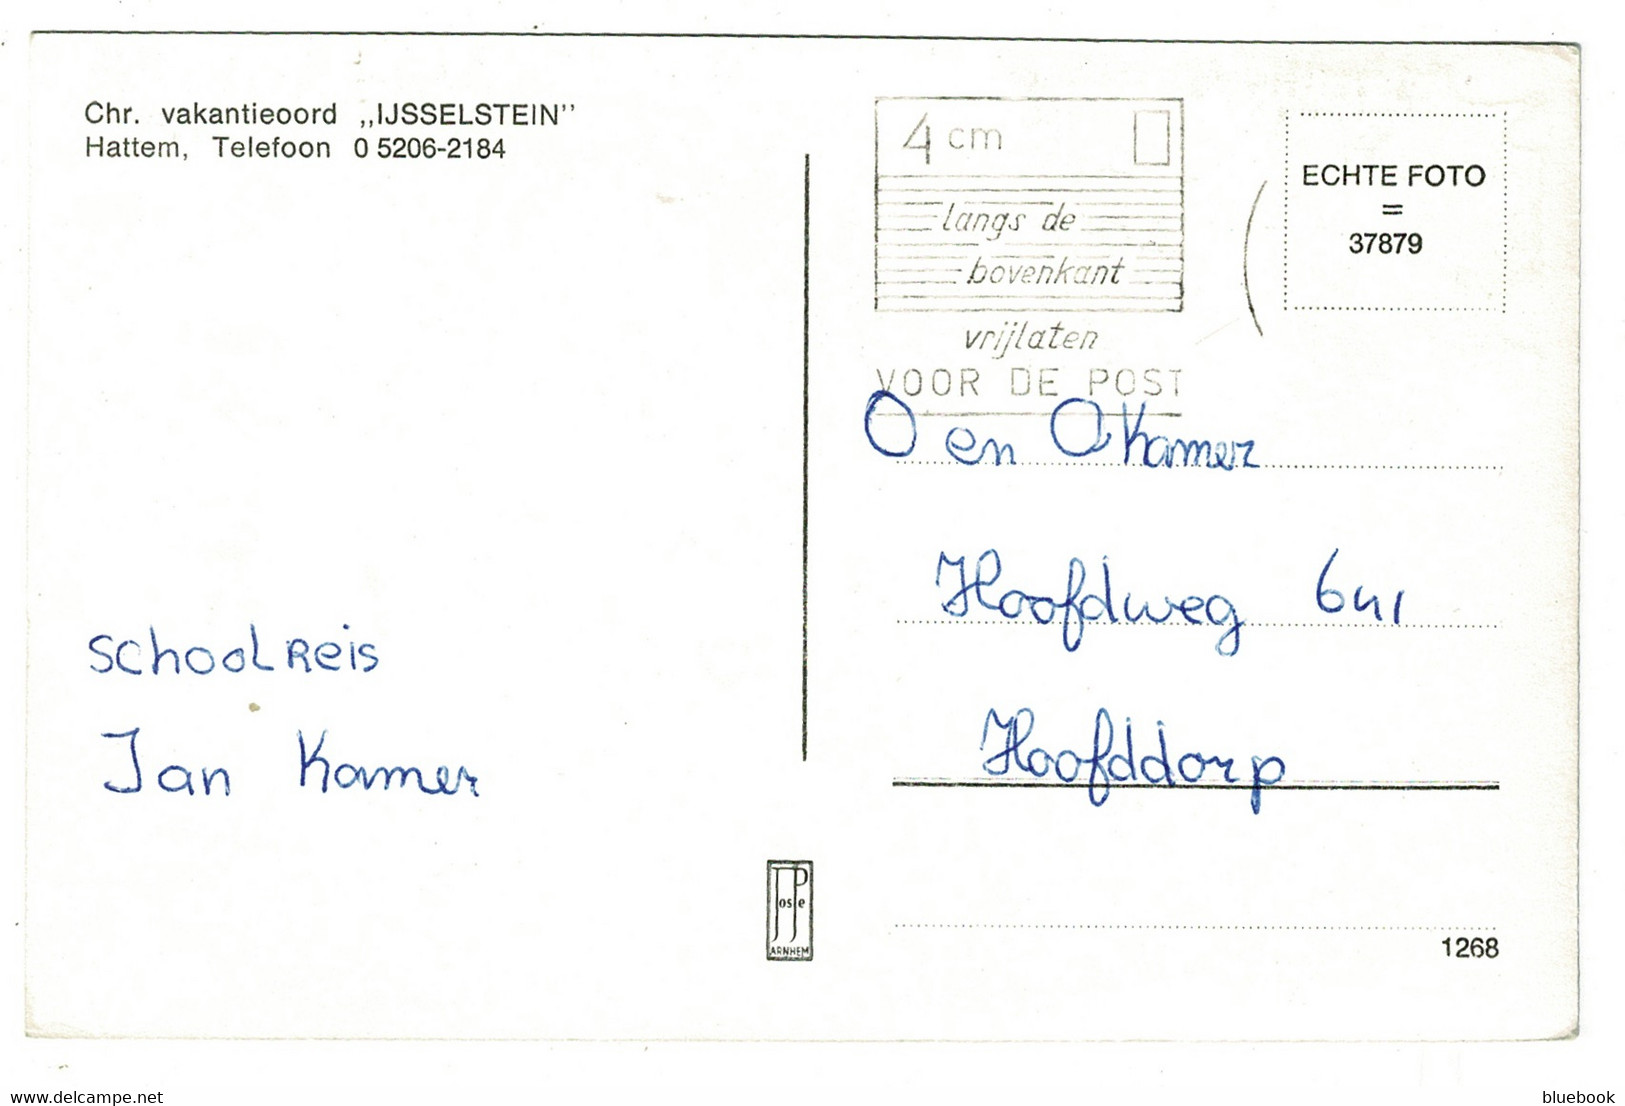 Chr. vakantieoord „IJSSELSTEIN"
Hattem, Telefoon 0 5206-2184
4 cm
langs de
bovenkant
vrijlaten
VOOR DE POST
ECHTE FOTO
=
37879
O en O Kamer
Hoofdweg 641
Hoofddorp
schoolreis
Jan Kamer
JosPe
ARNHEM
1268
delcampe.net
bluebook